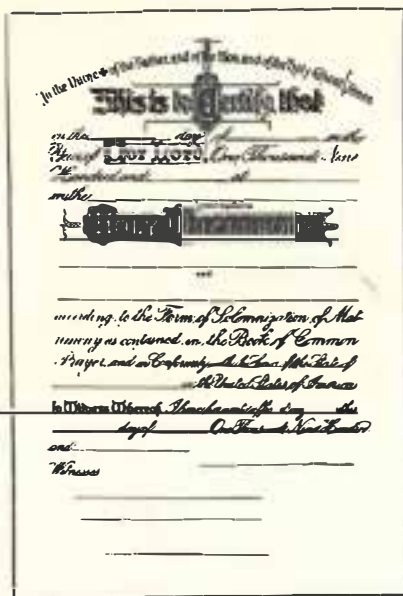 In the Name of the Father, and of the Son, and of the Holy Ghost, Amen
This is to Certify that
on the day of in the
Year of Our Lord, One Thousand Nine
Hundred and at
in the
Holy Matrimony
and
according to the Form of Solemnization of Mat
rimony as contained in the Book of Common
Prayer, and in Conformity the Laws of the State of
the United States of America
In Witness Whereof, I have hereunto affix my this
day of One Thousand Nine Hundred
and
Witnesses